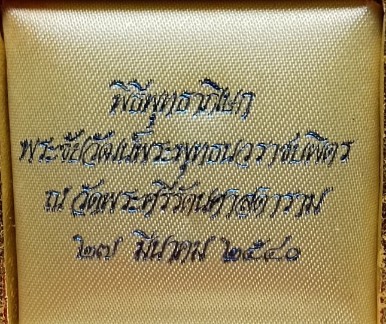 พิธีพุทธาภิเษก
พระชัยวัฒน์พระพุทธนวราชบพิตร
ณ วัดพระศรีรัตนศาสดาราม
๒๗ มีนาคม ๒๕๔๐